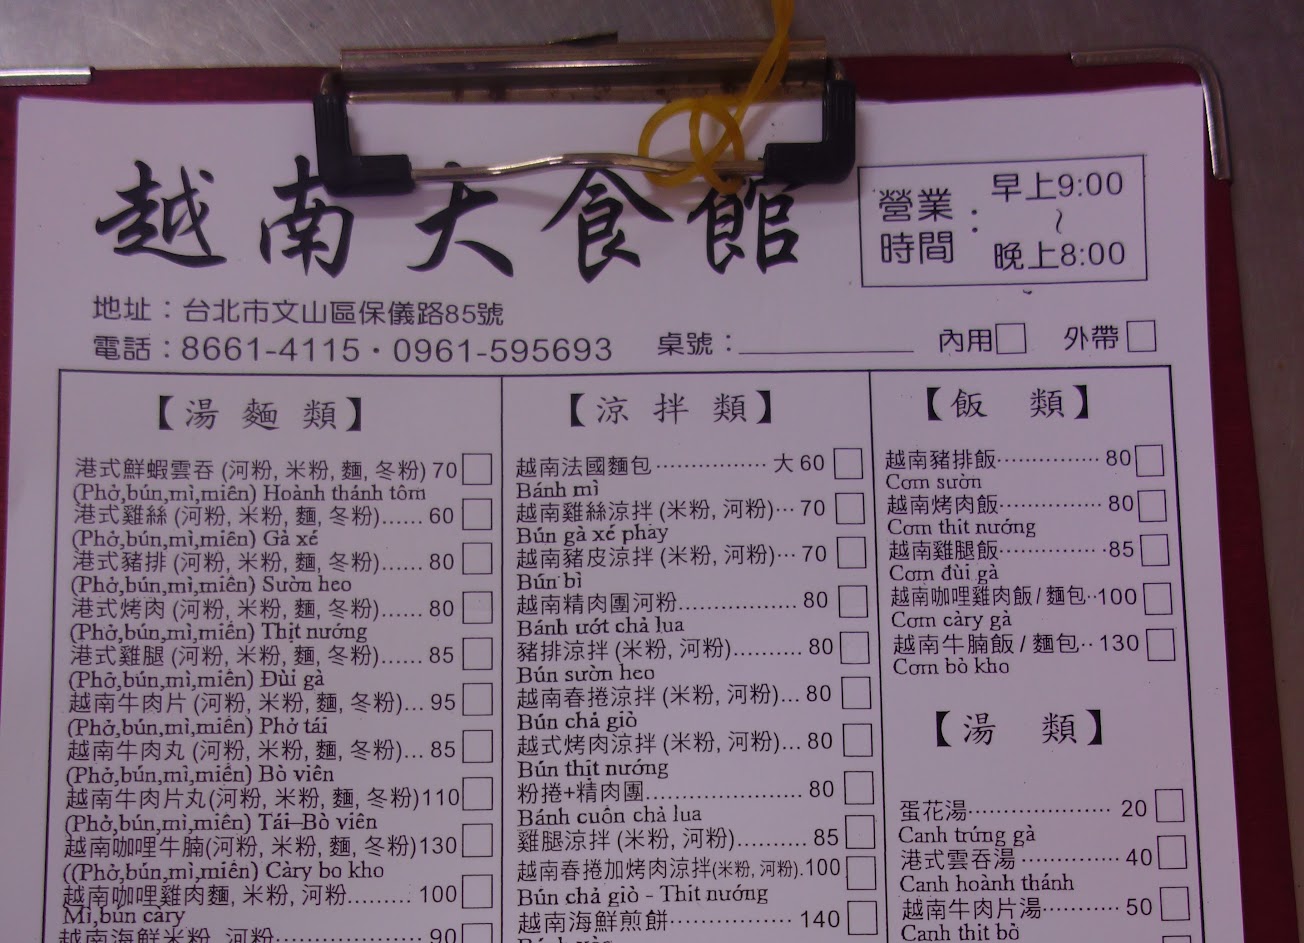 越南大食館
營業時間：早上9:00
～
晚上8:00
地址：台北市文山區保儀路85號
電話：8661-4115・0961-595693
桌號：
內用
外帶
【湯麵類】
港式鮮蝦雲吞 (河粉, 米粉, 麵, 冬粉) 70
(Phở,bún,mì,miên) Hoành thánh tôm
港式雞絲 (河粉, 米粉, 麵, 冬粉)...... 60
(Phở,bún,mì,miên) Gà xé
港式豬排 (河粉, 米粉, 麵, 冬粉)...... 80
(Phở,bún,mì,miên) Sườn heo
港式烤肉 (河粉, 米粉, 麵, 冬粉)...... 80
(Phở,bún,mì,miên) Thịt nướng
港式雞腿 (河粉, 米粉, 麵, 冬粉)...... 85
(Phở,bún,mì,miên) Đùi gà
越南牛肉片 (河粉, 米粉, 麵, 冬粉)... 95
(Phở,bún,mì,miên) Phở tái
越南牛肉丸 (河粉, 米粉, 麵, 冬粉)... 85
(Phở,bún,mì,miên) Bò viên
越南牛肉片丸(河粉, 米粉, 麵, 冬粉)110
(Phở,bún,mì,miên) Tái–Bò viên
越南咖哩牛腩(河粉, 米粉, 麵, 冬粉)130
((Phở,bún,mì,miên) Cày bo kho
越南咖哩雞肉麵, 米粉, 河粉......... 100
Mì,bún cày
越南海鮮米粉, 河粉..................... 90
【涼拌類】
越南法國麵包·················· 大 60
Bánh mì
越南雞絲涼拌 (米粉, 河粉)··· 70
Bún gà xé phay
越南豬皮涼拌 (米粉, 河粉)··· 70
Bún bì
越南精肉團河粉.................. 80
Bánh ướt chả lua
豬排涼拌 (米粉, 河粉)........... 80
Bún sườn heo
越南春捲涼拌 (米粉, 河粉)... 80
Bún chả giò
越式烤肉涼拌 (米粉, 河粉)... 80
Bún thịt nướng
粉捲+精肉團........................ 80
Bánh cuôn chả lua
雞腿涼拌 (米粉, 河粉).......... 85
越南春捲加烤肉涼拌(米粉, 河粉).100
Bún chả giò - Thịt nướng
越南海鮮煎餅·················· 140
【飯類】
越南豬排飯··············· 80
Cơm sườn
越南烤肉飯··············· 80
Cơm thịt nướng
越南雞腿飯··············· 85
Cơm đùi gà
越南咖哩雞肉飯 / 麵包··100
Cơm cày gà
越南牛腩飯 / 麵包·· 130
Cơm bò kho
【湯類】
蛋花湯····················· 20
Canh trứng gà
港式雲吞湯·············· 40
Canh hoành thánh
越南牛肉片湯··········· 50
Canh thịt bò